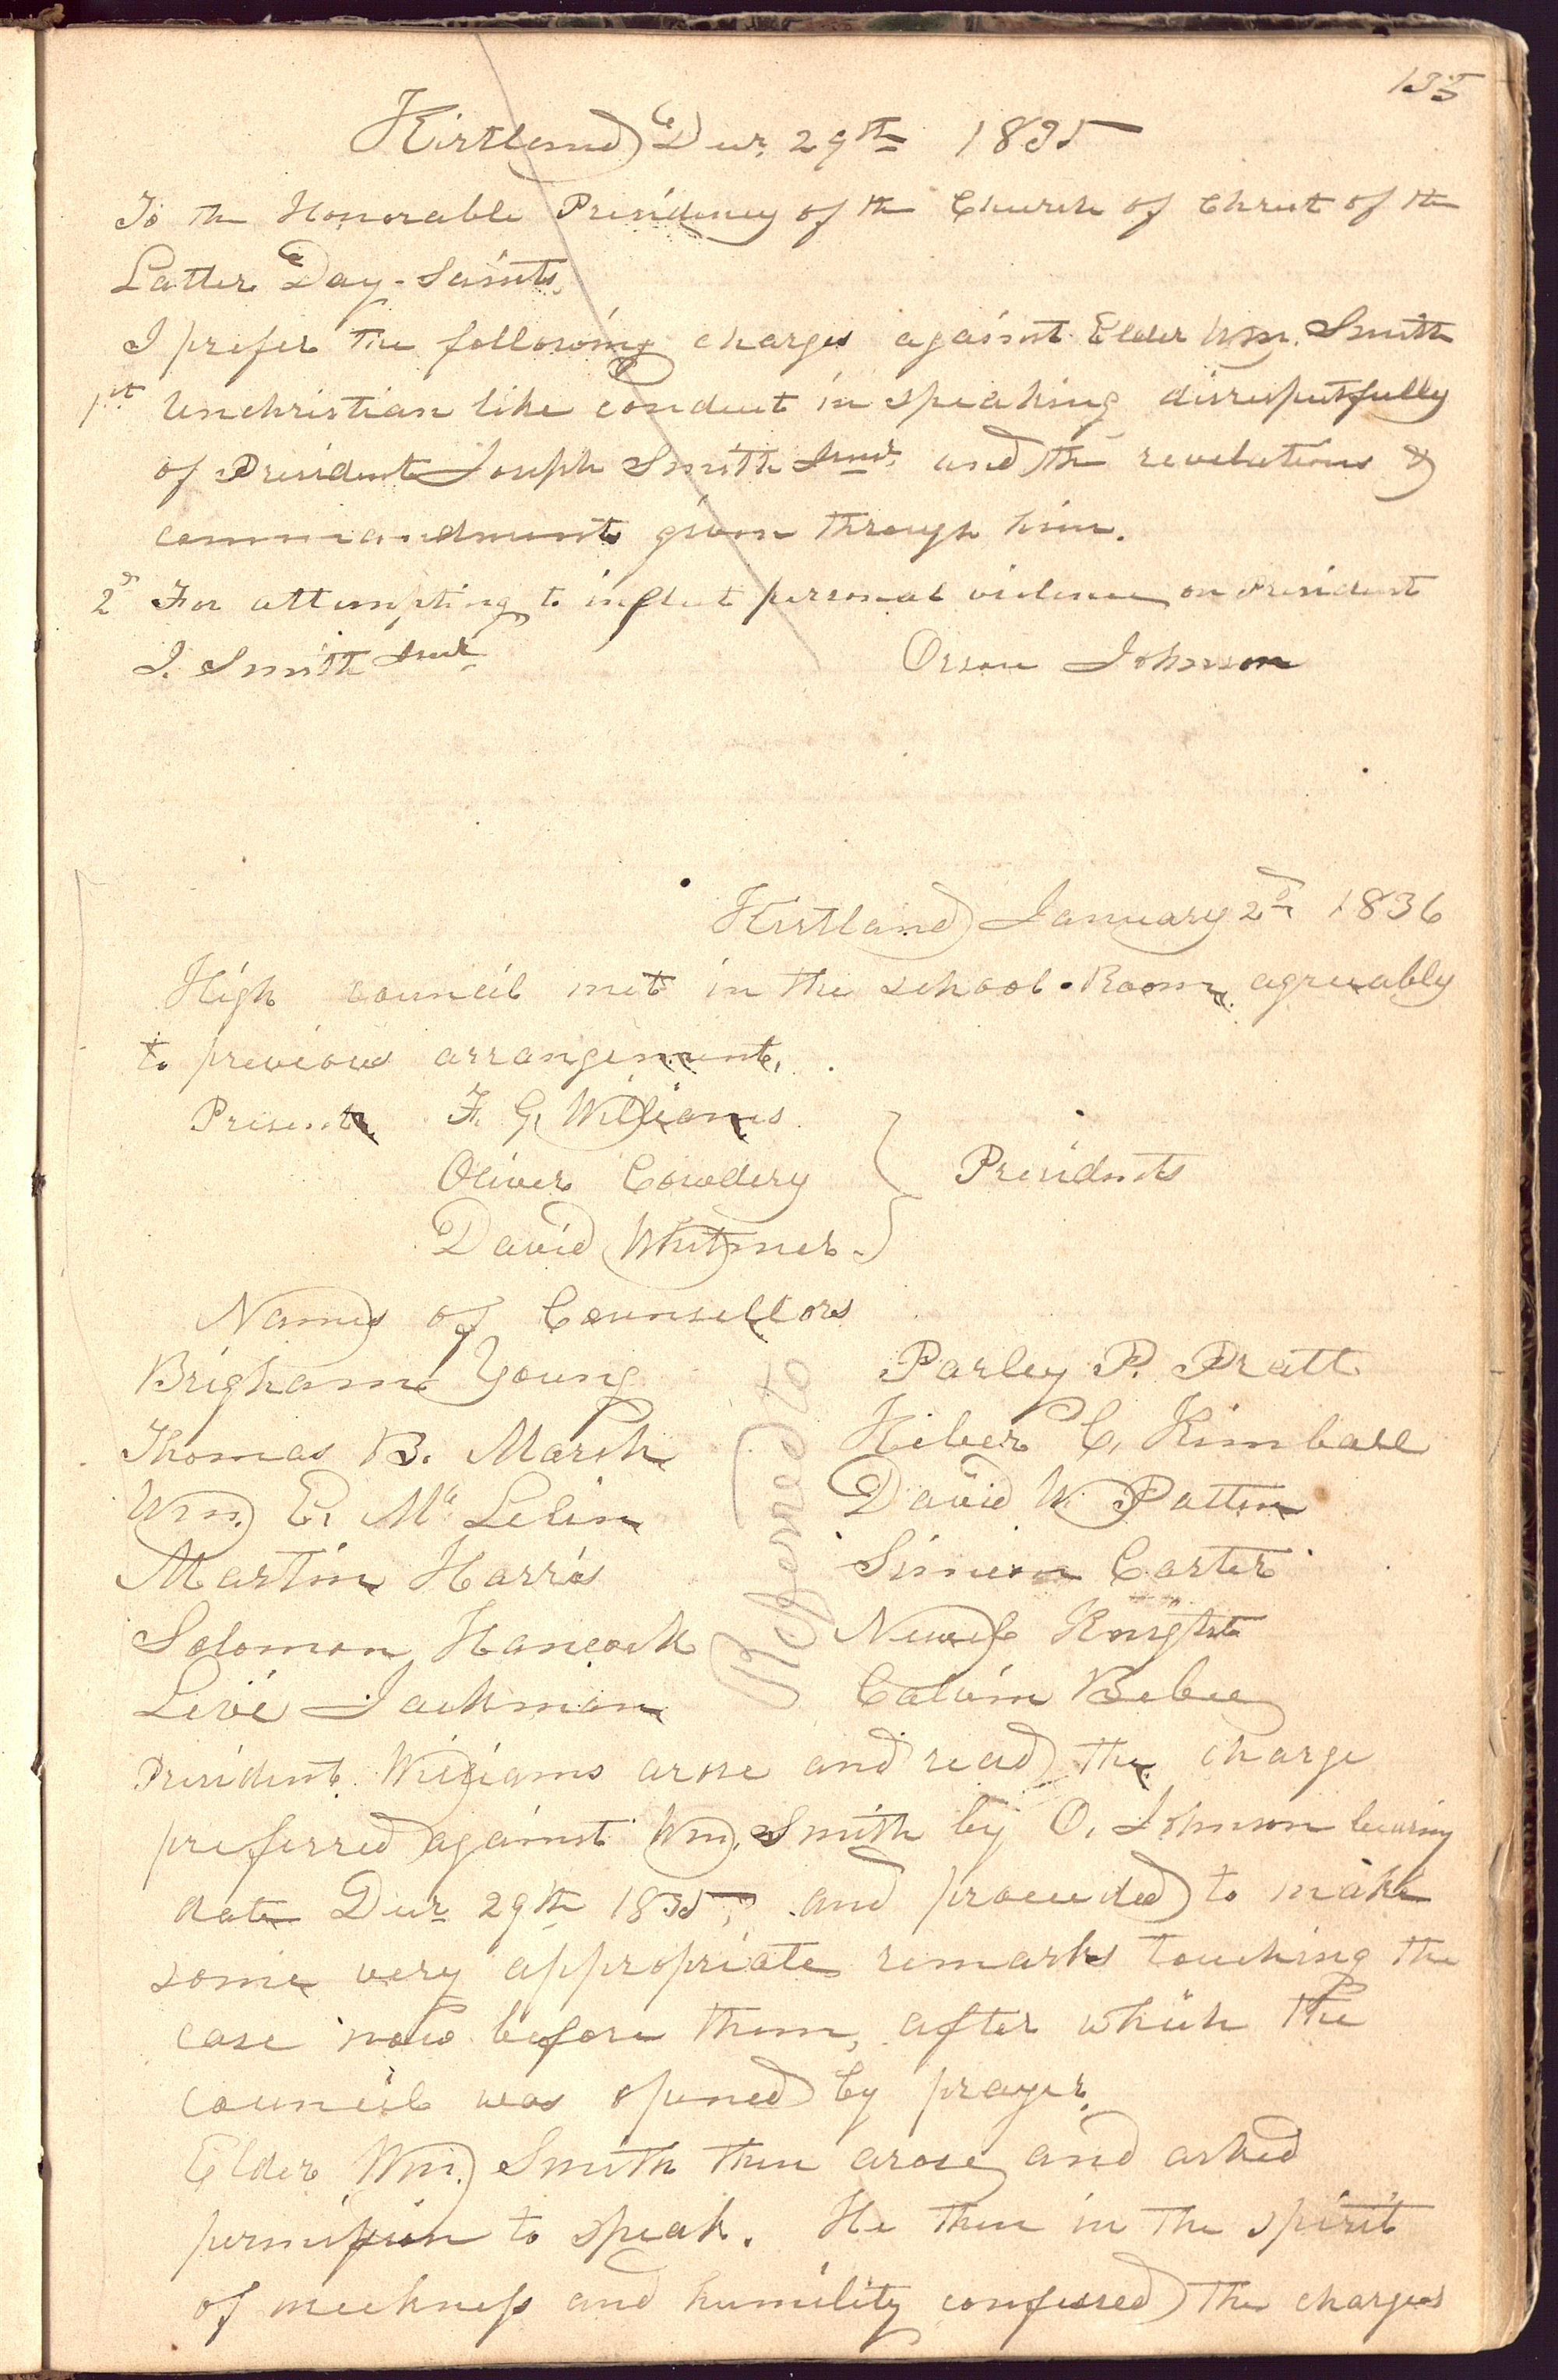 135
Kirtland Decr. 29th 1835
To the Honorable Presidency of the Church of Christ of the
Latter Day-Saints.
I prefer the following charges against Elder Wm. Smith
1st Unchristian like conduct in speaking disrespectfully
of President Joseph Smith Junr. and the revelations &
commandments given through him.
2d For attempting to inflict personal violence on President
J. Smith Junr
Orson Johnson
Kirtland January 2d 1836
High council met in the school-Room agreeably
to previous arrangement.
Present F. G. Williams
Oliver Cowdery } Presidents
David Whitmer
Names of Counsellors
Brigham Young Parley P. Pratt
Thomas B. Marsh Heber C. Kimball
Wm. E. Mc Lelin David W. Patten
Martin Harris Simeon Carter
Solomon Hancock Newel Knight
Levi Jackman Calvin Bebee
Refered to
President Williams arose and read the charge
preferred against Wm. Smith by O. Johnson bearing
date Decr 29th 1835, and proceeded to make
some very appropriate remarks touching the
case now before them, after which the
council was opened by prayer.
Elder Wm. Smith then arose and asked
permission to speak. He then in the spirit
of meekness and humility confessed the charges